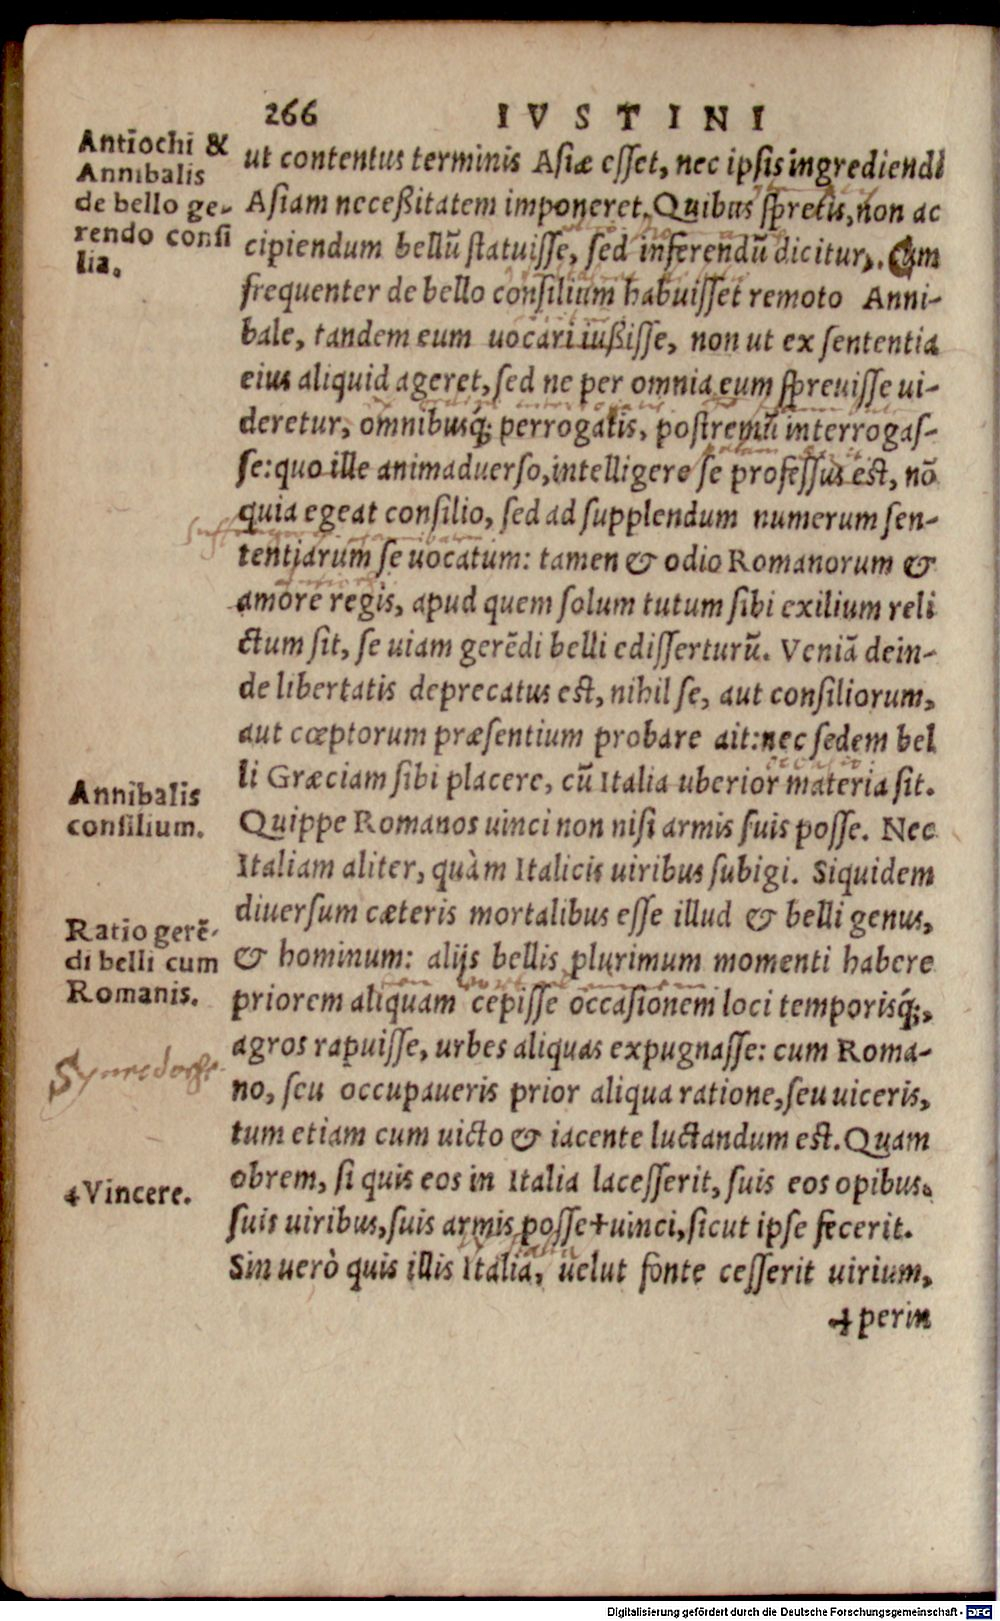 266 IVSTINI
Antiochi &
Annibalis
de bello ge-
rendo consi
lia.
ut contentus terminis Asiæ esset, nec ipsis ingrediendi
Asiam neceßitatem imponeret. Quibus spretis, non ac
cipiendum bellū statuisse, sed inferendū dicitur. Cum
frequenter de bello consilium habuisset remoto Anni-
bale, tandem eum uocari iußisse, non ut ex sententia
eius aliquid ageret, sed ne per omnia eum spreuisse ui-
deretur, omnibusq́; perrogatis, postremū interrogas-
se: quo ille animaduerso, intelligere se professus est, nō
quia egeat consilio, sed ad supplendum numerum sen-
tentiarum se uocatum: tamen & odio Romanorum &
amore regis, apud quem solum tutum sibi exilium reli
ctum sit, se uiam gerēdi belli edisserturū. Veniā dein-
de libertatis deprecatus est, nihil se, aut consiliorum,
aut cœptorum præsentium probare ait: nec sedem bel
li Græciam sibi placere, cū Italia uberior materia sit.
Annibalis
consilium.
Quippe Romanos uinci non nisi armis suis posse. Nec
Italiam aliter, quàm Italicis uiribus subigi. Siquidem
diuersum cæteris mortalibus esse illud & belli genus,
Ratio gerē-
di belli cum
Romanis.
& hominum: alijs bellis plurimum momenti habere
priorem aliquam cepisse occasionem loci temporisq́;,
agros rapuisse, urbes aliquas expugnasse: cum Roma-
Synecdoche
no, seu occupaueris prior aliqua ratione, seu uiceris,
tum etiam cum uicto & iacente luctandum est. Quam
obrem, si quis eos in Italia lacesserit, suis eos opibus,
+Vincere.
suis uiribus, suis armis posse+uinci, sicut ipse fecerit.
Sin uerò quis illis Italia, uelut fonte cesserit uirium,
+perin
Digitalisierung gefördert durch die Deutsche Forschungsgemeinschaft - DFG